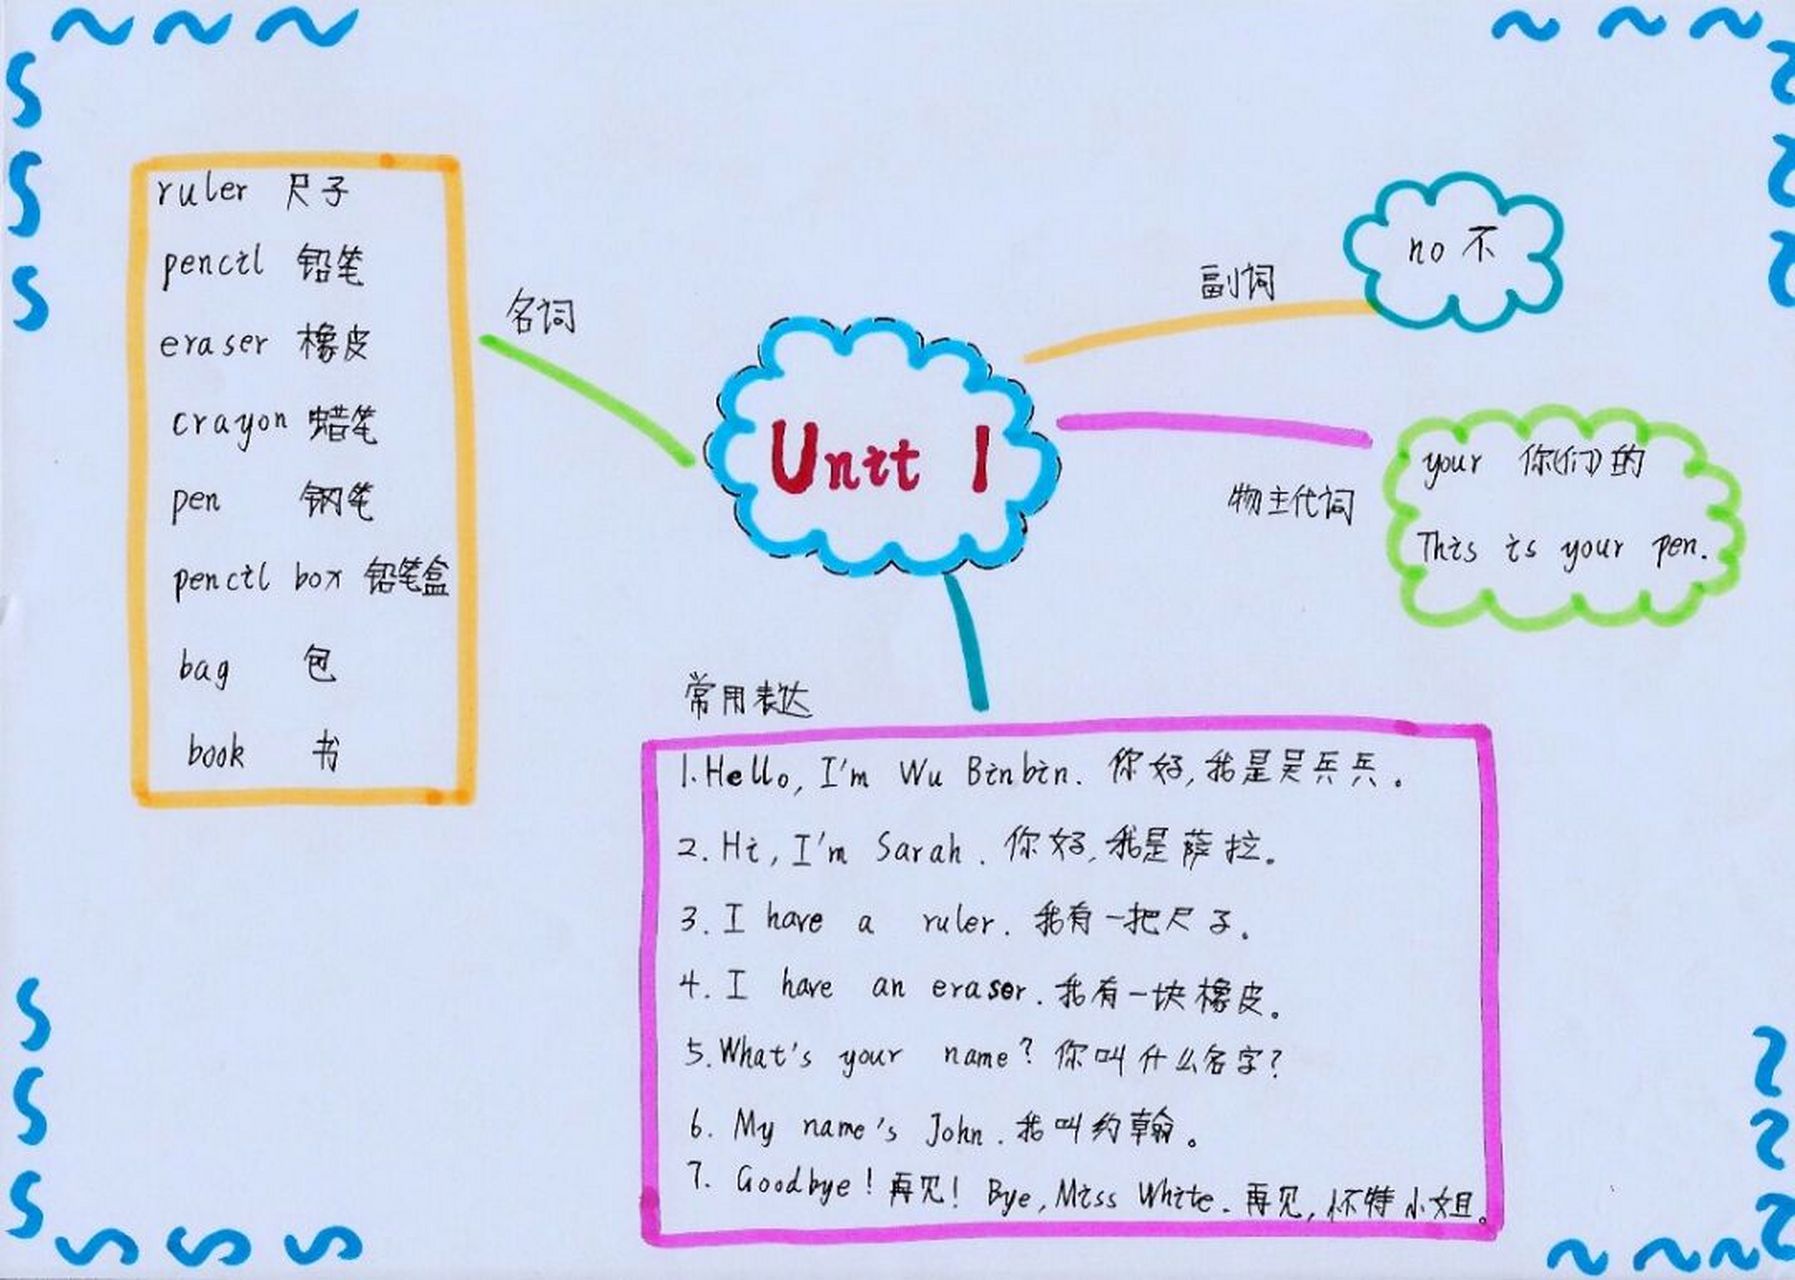 ruler 尺子
pencil 铅笔
eraser 橡皮
crayon 蜡笔
pen 钢笔
pencil box 铅笔盒
bag 包
book 书
名词
Unit 1
副词
no 不
物主代词
your 你(们)的
This is your pen.
常用表达
1.Hello, I'm Wu Binbin. 你好,我是吴兵兵。
2. Hi, I'm Sarah. 你好,我是萨拉。
3. I have a ruler. 我有一把尺子。
4. I have an eraser. 我有一块橡皮。
5.What's your name? 你叫什么名字?
6. My name's John. 我叫约翰。
7. Goodbye! 再见! Bye, Miss White. 再见,怀特小姐。